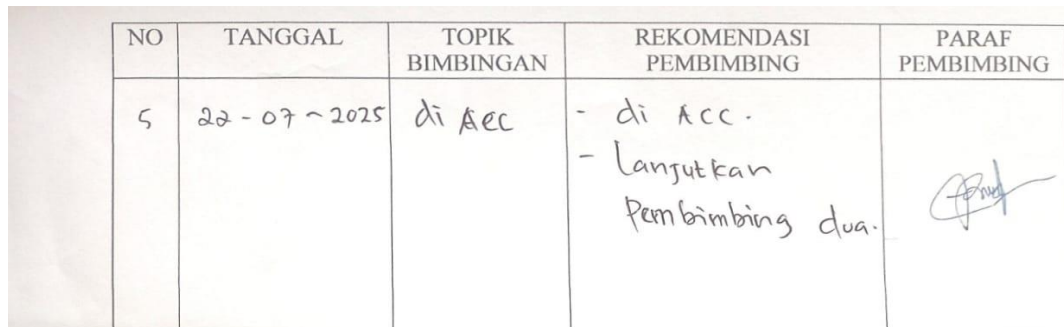 NO TANGGAL TOPIK BIMBINGAN REKOMENDASI PEMBIMBING PARAF PEMBIMBING
5 22-07-2025 di Acc - di ACC.
- Lanjutkan
Pembimbing dua.